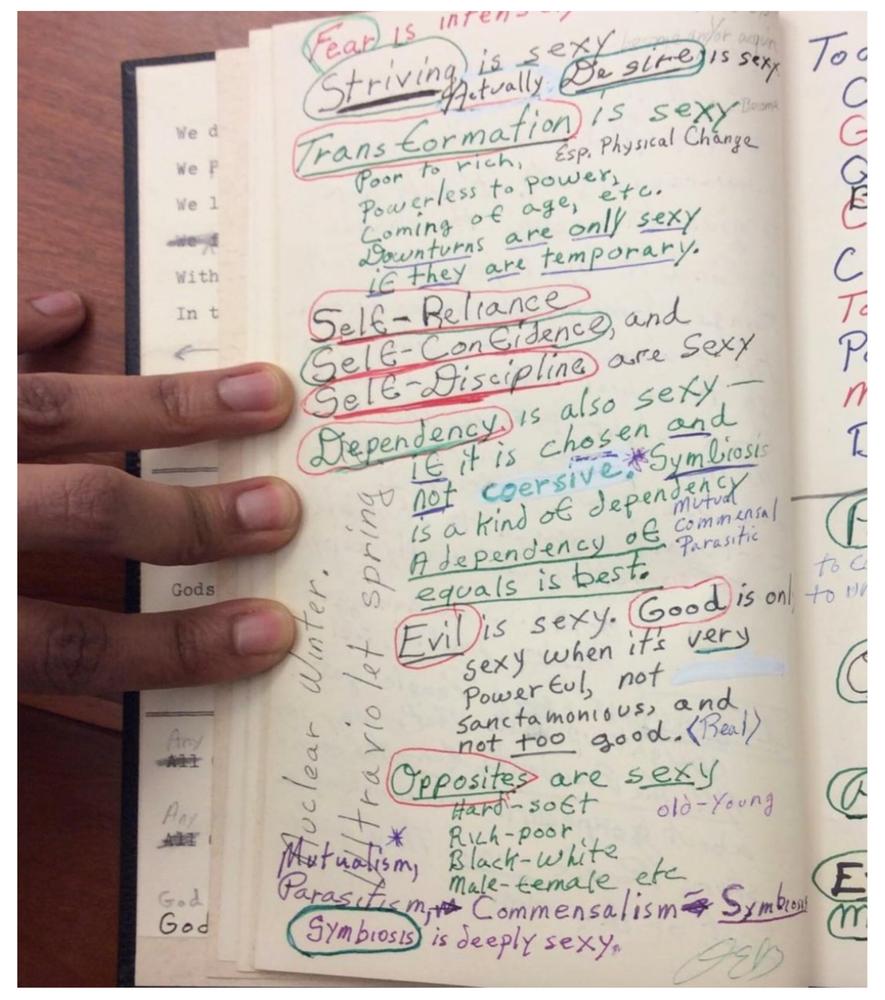 Fear is intensely
Striving is sexy
become and/or acquire
Actually Desire is sexy
Transformation is sexy
Become
Poor to rich, Esp. Physical Change
Powerless to power,
Coming of age, etc.
Downturns are only sexy
if they are temporary.
Self-Reliance
Self-Confidence, and
Self-Discipline are sexy
Dependency is also sexy —
if it is chosen and
not coersive. *Symbiosis
is a kind of dependency
Mutual
Commensal
Parasitic
A dependency of
equals is best.
Evil is sexy. Good is onl
sexy when it's very
Powerful, not
sanctamonious, and
not too good. <Real>
Opposites are sexy
Hard-soft old-Young
Rich-poor
Black-white
Male-female etc
*
Mutualism,
Parasitism, Commensalism = Symbiosis
Symbiosis is deeply sexy.
OEB
Nuclear Winter.
Ultraviolet spring
We d
We P
We l
With
In t
←
Gods
Any
All
Any
All
God
God
Too
C
G
C
To
P
M
D
to C
to
E
m